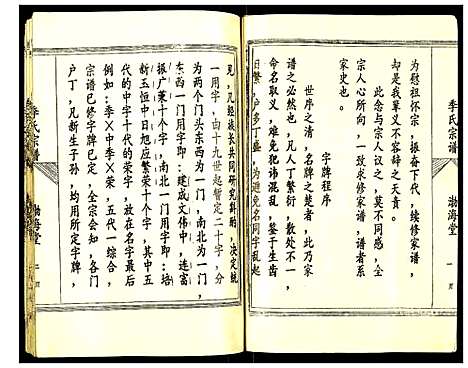 李氏宗譜
渤海堂
一
為慰祖怀宗，振奋下代，续修家谱，
却是我辈义不容辞之天責。
此念与宗人议之，莫不同感，全
宗人心所向，一致求修家谱，谱者系
家史也。
字牌程序
世序之清，名牌之楚者，此乃家
谱之必然也，凡人丁繁衍，散处不一，
日繁，户多丁盛，为避免名同字乱起
见，几经族长共同研究斟酌，决定统
一用字，由十九世起暂定二十字，分
为两个门头东西为一门，南北为一门，
东西一门用字即：建成文伟中，连富
振广荣十个字，南北一门用字即：培
新玉恒中日旭应繁荣十个字，其中五
代的中字十代的荣字，放在名字最后
一字，例如：李×中李×荣，五代一综合，
宗谱已修字牌已定，全宗会知，各门
户丁，凡新生子孙，均用所定字牌，
李氏宗譜
渤海堂
二